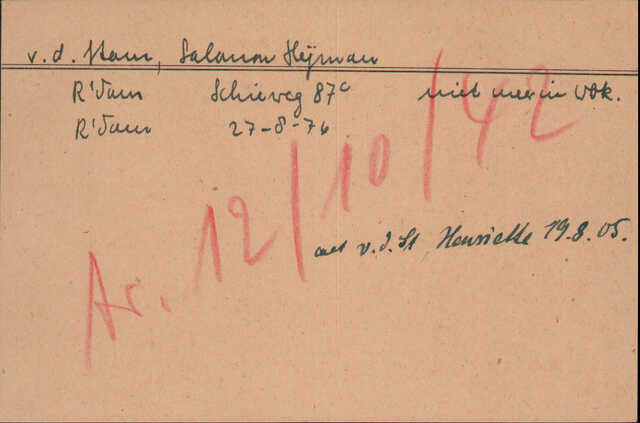 v.d. Stam, Salomon Heijman
R'dam Schieweg 87c niet meer in WBK.
R'dam 27-8-76
Ar. 12/10/42
met v.d. St Henriette 19.8.05.